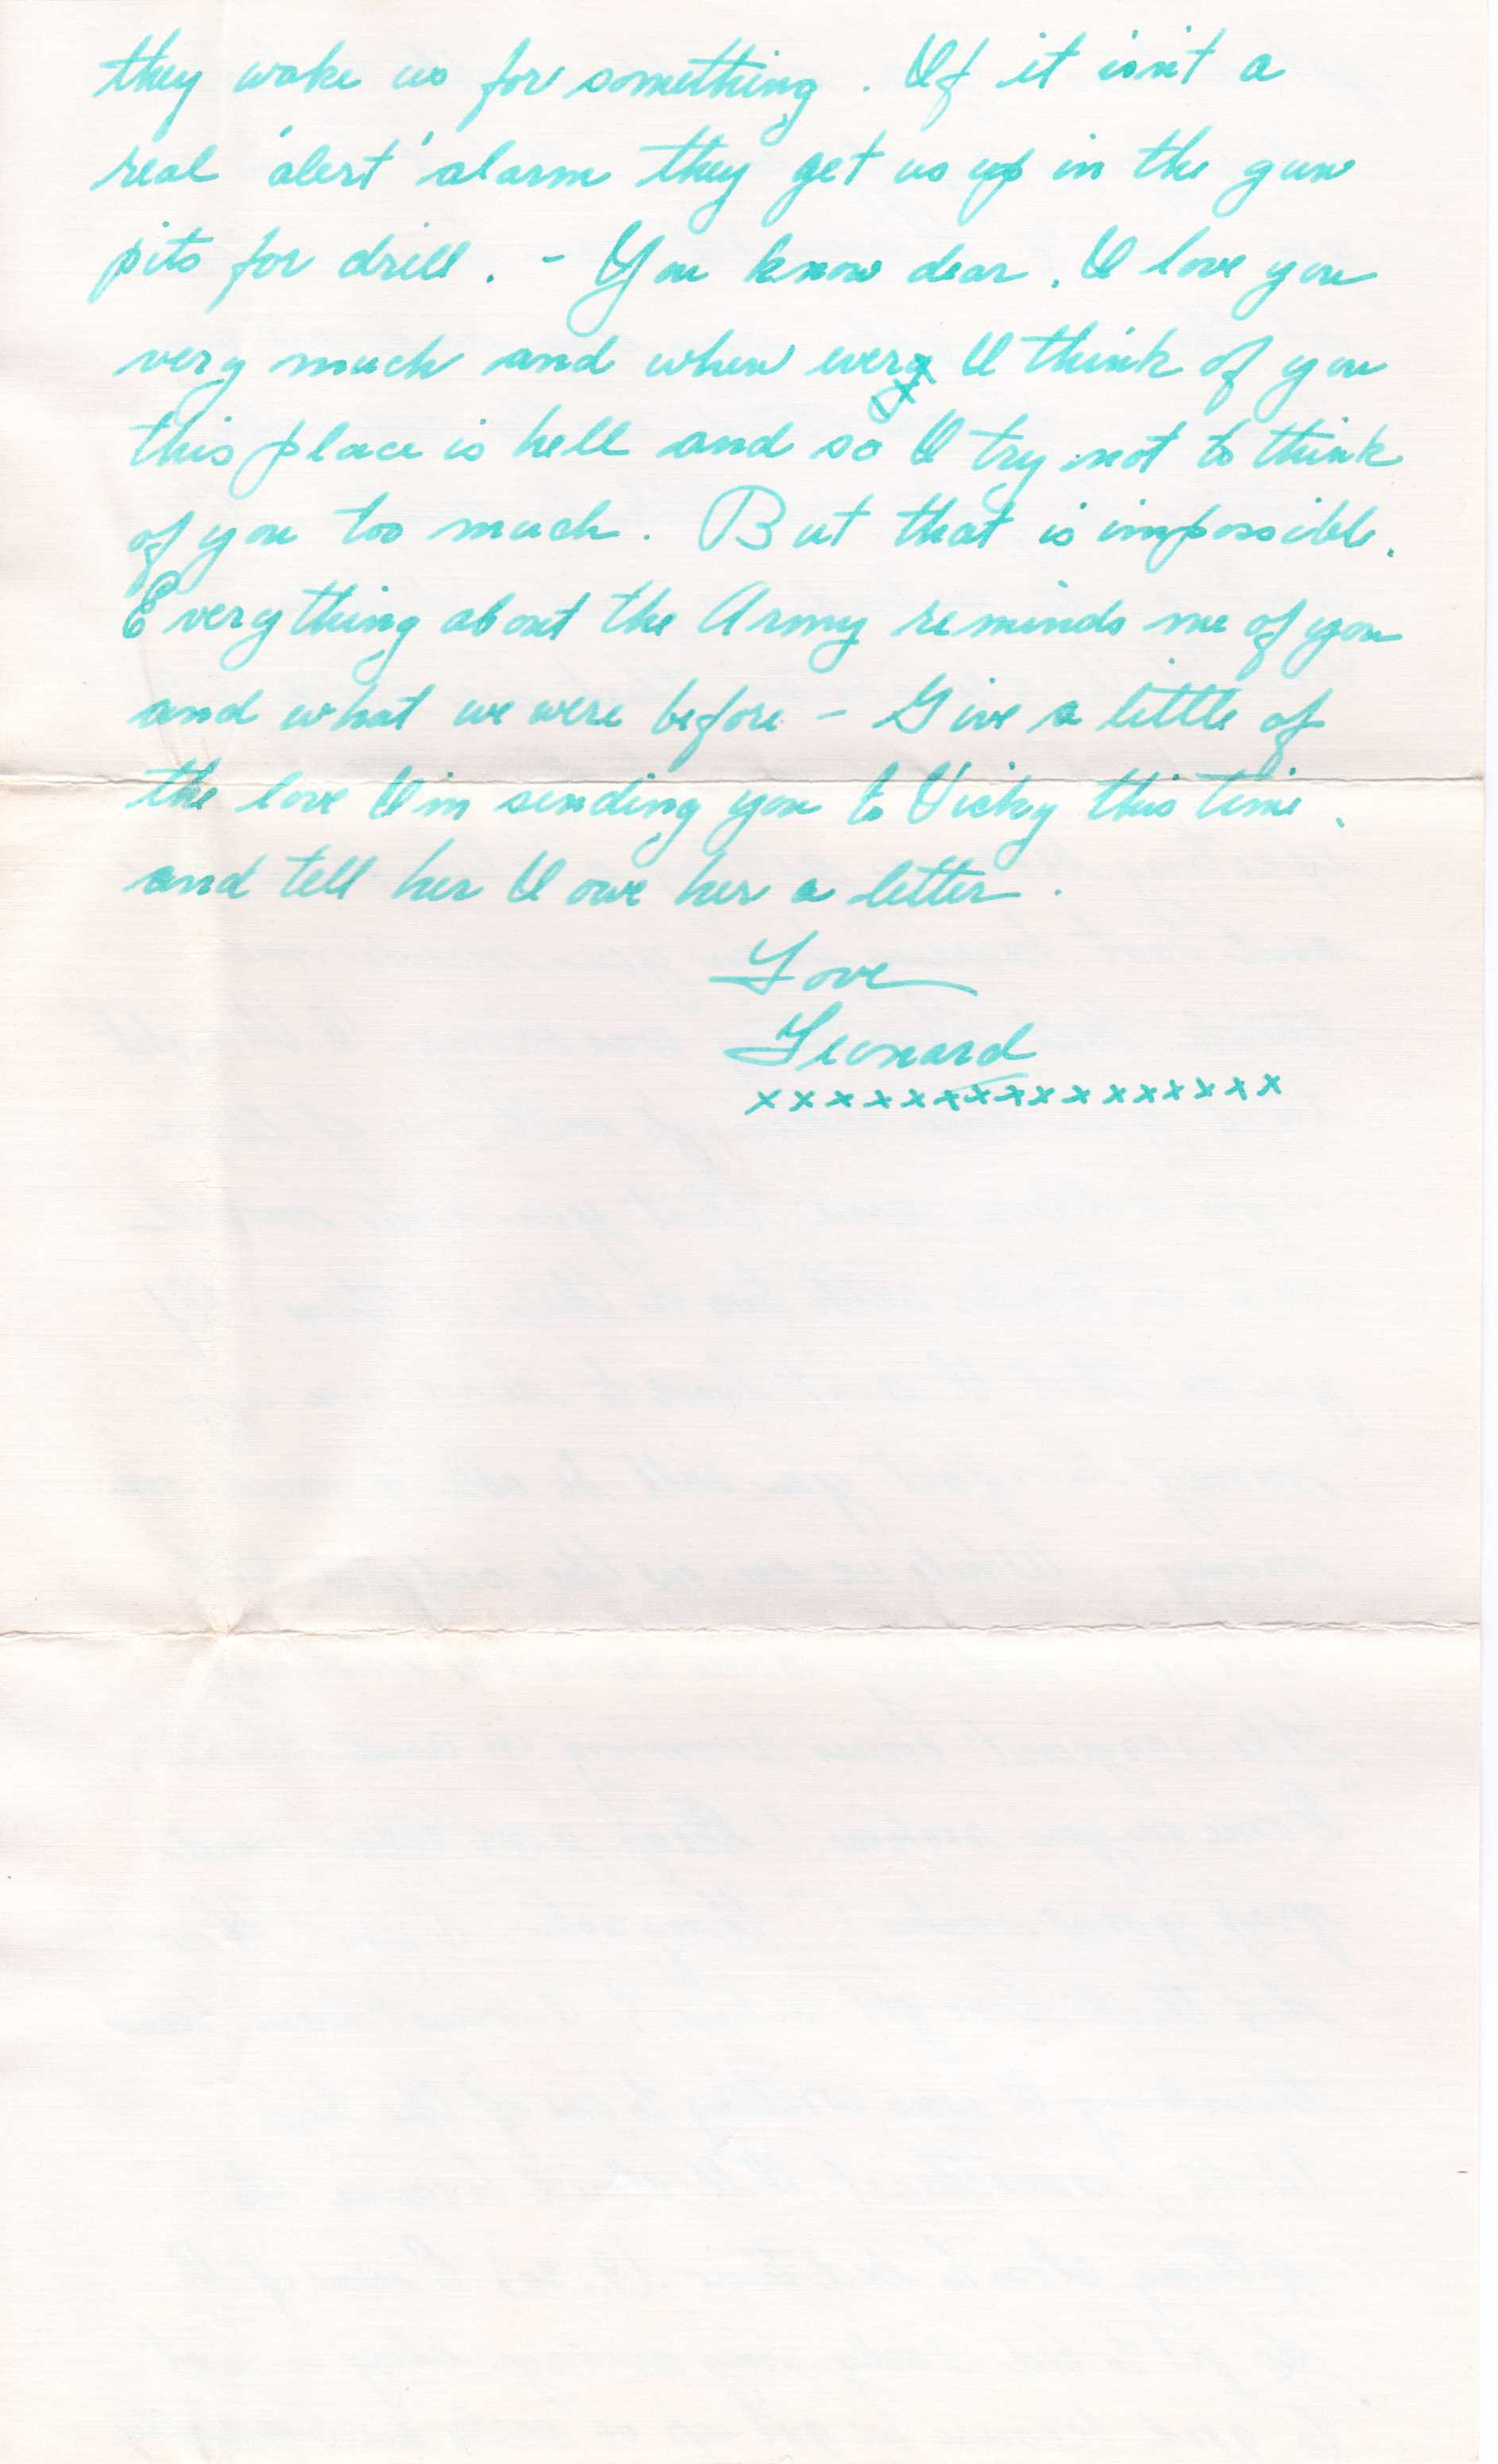 they wake us for something. If it isn't a
real 'alert' alarm they get us up in the gun
pits for drill. - You know dear. I love you
very much and when every I think of you
this place is hell and so I try not to think
of you too much. But that is impossible.
Everything about the Army reminds me of you
and what we were before - Give a little of
the love I'm sending you to Vicky this time.
and tell her I owe her a letter.
Love
Leonard
xxxxxxxxxxxxxxxxx